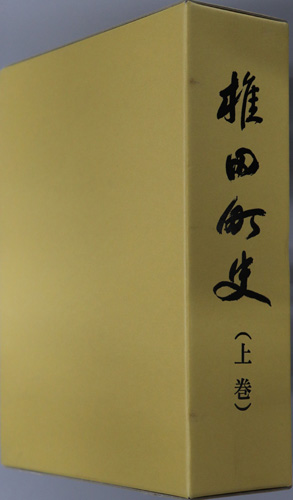 椎田町史(上巻)